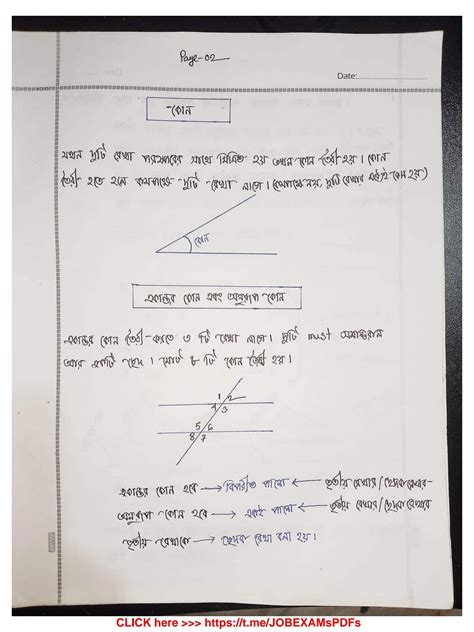 Page-02
Date:
কোন
যখন দুটি রেখা পরস্পরের সাথে মিলিত হয় তখন কোন তৈরী হয়। কোন
তৈরী হতে হলে কমপক্ষে দুটি রেখা লাগে। দুটি রেখার
কোন
একান্তর কোন এবং অনুরূপ কোন
একান্তর কোন তৈরী করতে ৩ টি রেখা লাগে। দুটি must সমান্তরাল
আর একটি ছেদ। মোট ৮ টি কোন তৈরী হয়।
1 2
4 3
5 6
8 7
একান্তর কোন হবে → বিপরীত পাশে ← তৃতীয় রেখার/ছেদক রেখার
অনুরূপ কোন হবে → একই পাশে ← তৃতীয় রেখার/ছেদক রেখার
তৃতীয় রেখাকে → ছেদক রেখা বলা হয়।
CLICK here >>> https://t.me/JOBEXAMsPDFs